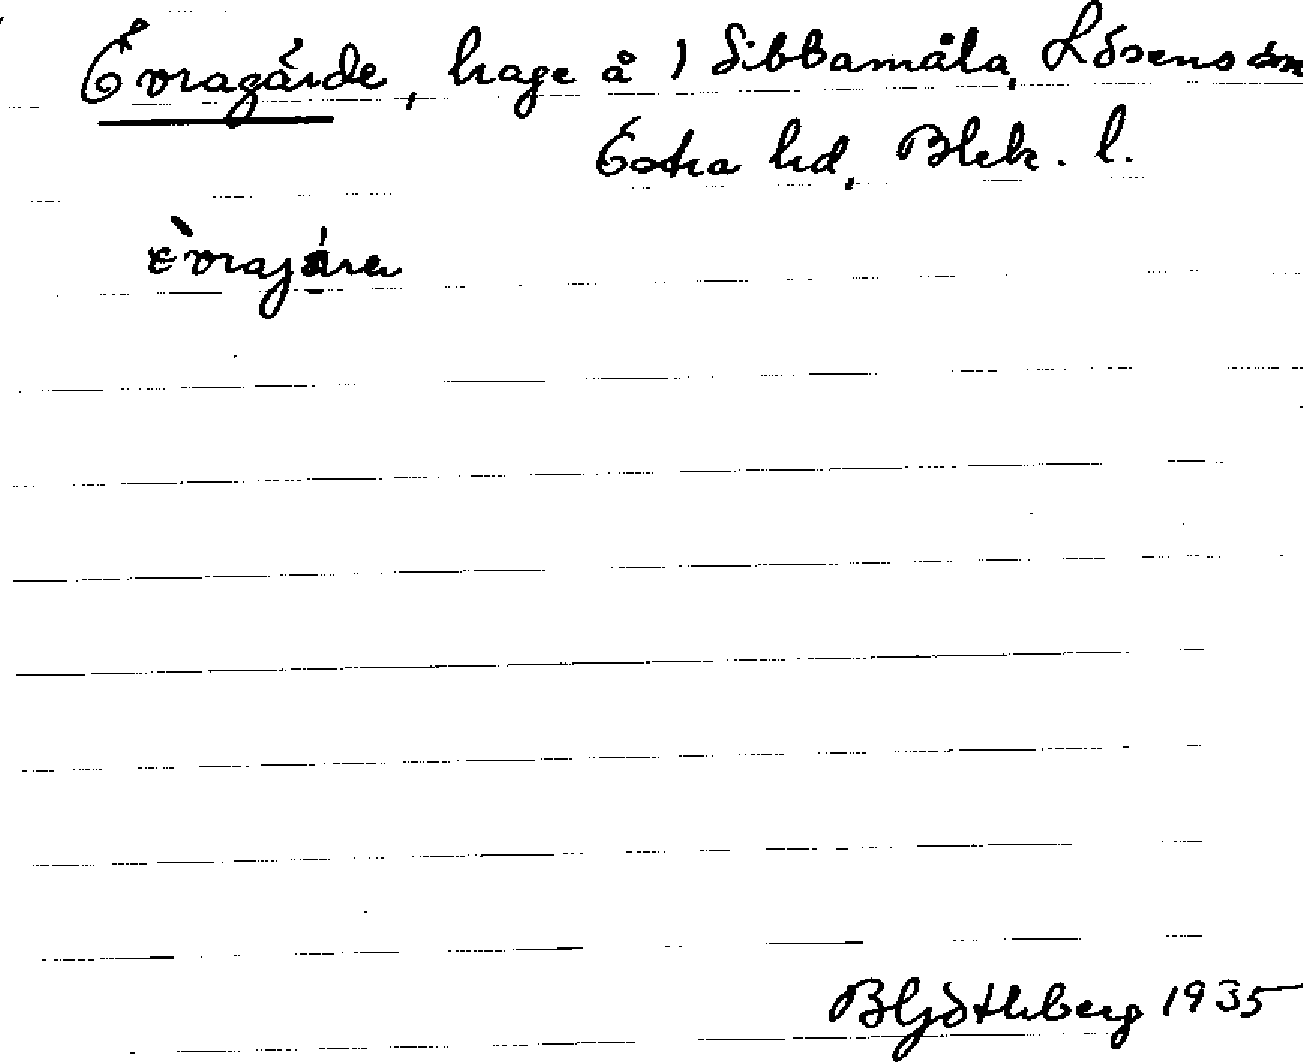 Övragärde, hage å 1 Sibbamåla, Lösens sn
Östra hd, Blek. l.
BGöthberg 1935